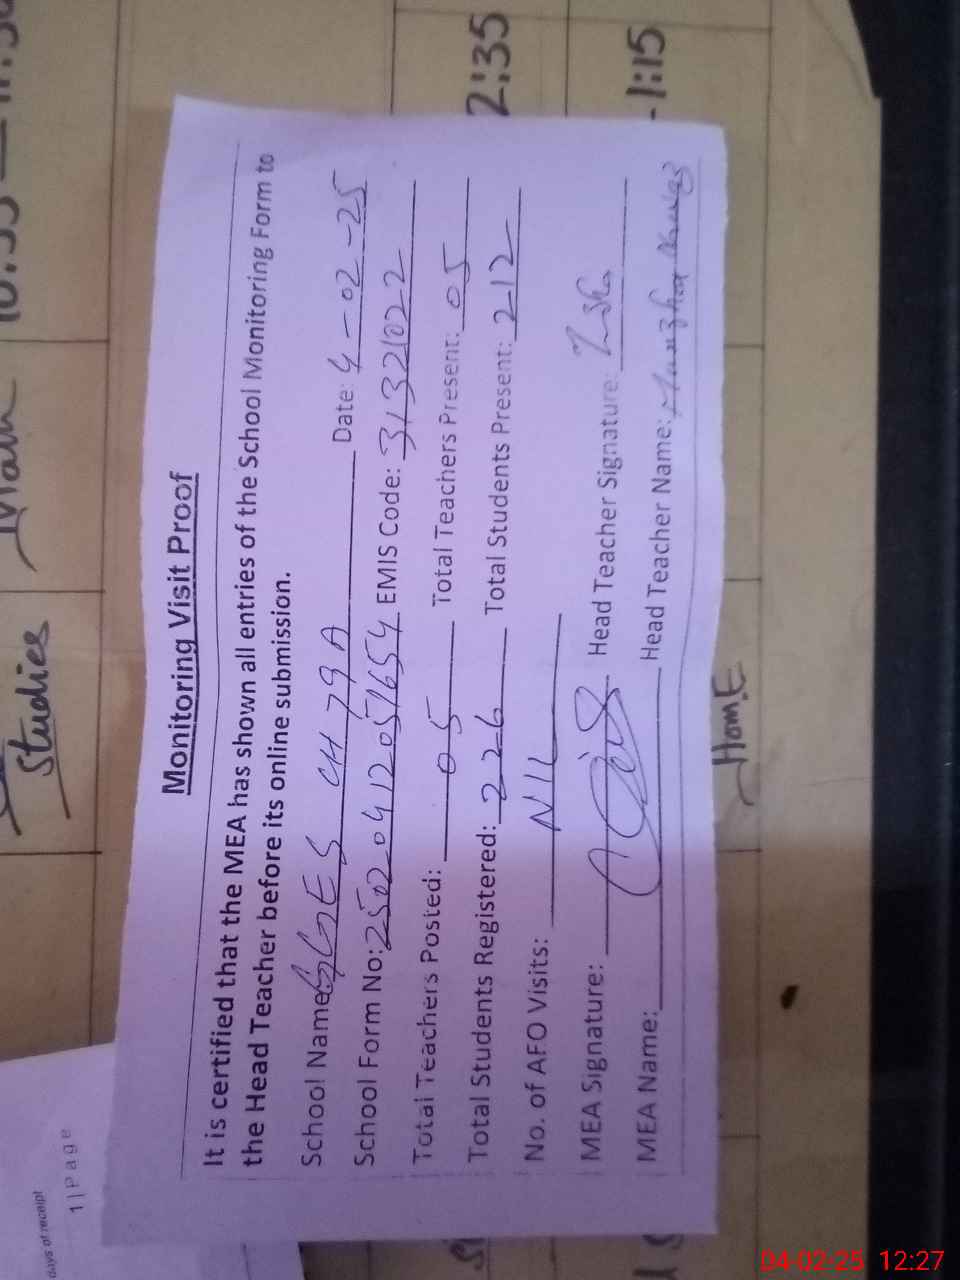 Monitoring Visit Proof
It is certified that the MEA has shown all entries of the School Monitoring Form to
the Head Teacher before its online submission.
School Name: GGES CH 79 A Date: 4-02-25
School Form No: 250204120571654 EMIS Code: 31321022
Total Teachers Posted: 05 Total Teachers Present: 05
Total Students Registered: 226 Total Students Present: 212
No. of AFO Visits: NIL
MEA Signature: Head Teacher Signature:
MEA Name: Head Teacher Name:
Studies
2:35
-1:15
Hom.E
days of receipt
1 | Page
04-02-25 12:27